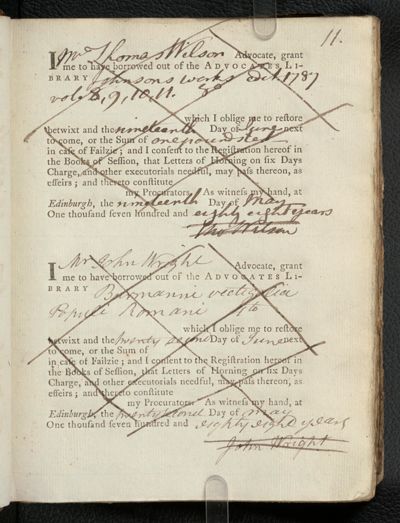 11.
I Mr Thomas Wilson Advocate, grant
me to have borrowed out of the ADVOCATES LI-
BRARY Johnsons works Edit 1787
vols 8, 9, 10, 11. 8o
which I oblige me to restore
betwixt and the nineteenth Day of June next
to come, or the Sum of one pound ster
in case of Failzie; and I consent to the Registration hereof in
the Books of Session, that Letters of Horning on six Days
Charge, and other executorials needful, may pass thereon, as
effeirs; and thereto constitute
my Procurators. As witness my hand, at
Edinburgh, the nineteenth Day of May
One thousand seven hundred and eighty eight years
Tho Wilson
I Mr John Wright Advocate, grant
me to have borrowed out of the ADVOCATES LI-
BRARY Burmanni vectigalia
Populi Romani 4to
which I oblige me to restore
betwixt and the twenty second Day of June next
to come, or the Sum of
in case of Failzie; and I consent to the Registration hereof in
the Books of Session, that Letters of Horning on six Days
Charge, and other executorials needful, may pass thereon, as
effeirs; and thereto constitute
my Procurators. As witness my hand, at
Edinburgh, the twenty second Day of May
One thousand seven hundred and eighty eight years
John Wright